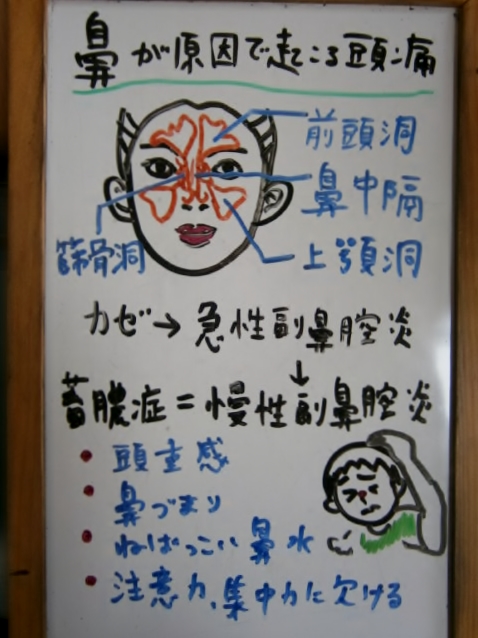 鼻が原因で起こる頭痛
前頭洞
鼻中隔
篩骨洞
上顎洞
カゼ→急性副鼻腔炎
↓
蓄膿症=慢性副鼻腔炎
• 頭重感
• 鼻づまり
• ねばっこい鼻水
• 注意力、集中力に欠ける